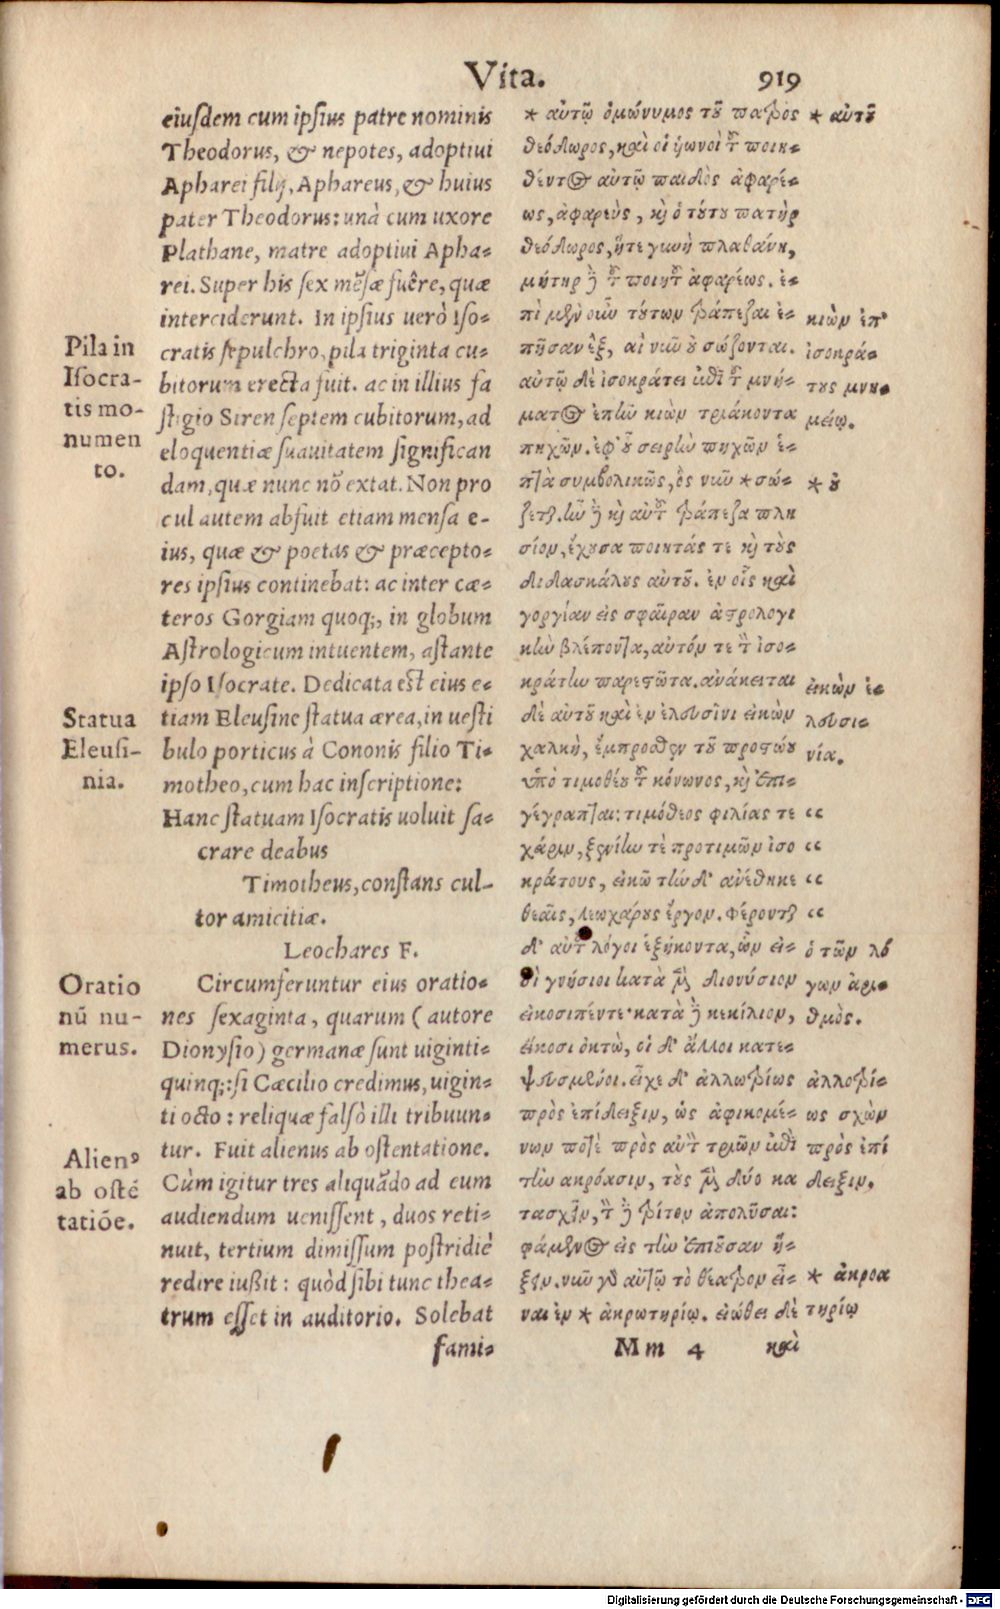 Vita. 919
eiusdem cum ipsius patre nominis
Theodorus, & nepotes, adoptiui
Apharei filij, Aphareus, & huius
pater Theodorus: unà cum uxore
Plathane, matre adoptiui Apha-
rei. Super his sex mēsæ fuêre, quæ
interciderunt. In ipsius uerò Iso-
cratis sepulchro, pila triginta cu-
bitorum erecta fuit. ac in illius fa
stigio Siren septem cubitorum, ad
eloquentiæ suauitatem significan
dam, quæ nunc nō extat. Non pro
cul autem abfuit etiam mensa e-
ius, quæ & poetas & præcepto-
res ipsius continebat: ac inter cæ-
teros Gorgiam quoq;, in globum
Astrologicum intuentem, astante
ipso Isocrate. Dedicata est eius e-
tiam Eleusine statua ærea, in uesti
bulo porticus à Cononis filio Ti-
motheo, cum hac inscriptione:
Hanc statuam Isocratis uoluit sa-
crare deabus
Timotheus, constans cul-
tor amicitiæ.
Leochares F.
Circumferuntur eius oratio-
nes sexaginta, quarum (autore
Dionysio) germanæ sunt uiginti-
quinq;: si Cæcilio credimus, uigin-
ti octo: reliquæ falsò illi tribuun-
tur. Fuit alienus ab ostentatione.
Cùm igitur tres aliquādo ad eum
audiendum uenissent, duos reti-
nuit, tertium dimissum postridiè
redire iußit: quòd sibi tunc thea-
trum esset in auditorio. Solebat
fami-
Pila in
Isocra-
tis mo-
numen
to.
Statua
Eleusi-
nia.
Oratio
nū nu-
merus.
Alienꝰ
ab ostē
tatiōe.
* αὐτῷ ὁμώνυμος τοῦ πατρὸς
θεόδωρος, καὶ οἱ ὑωνοὶ τοῦ ποιη-
θέντος αὐτῷ παιδὸς ἀφαρέ-
ως, ἀφαρεὺς, καὶ ὁ τούτου πατὴρ
θεόδωρος, ἥτε γυνὴ πλαθάνη,
μήτηρ δὲ τοῦ ποιητοῦ ἀφαρέως. ἐ-
πὶ μὲν οὖν τούτων τράπεζαι ἐ-
πῆσαν ἓξ, αἱ νῦν οὐ σώζονται.
αὐτῷ δὲ ἰσοκράτει ἐπὶ τοῦ μνή-
ματος ἐπῆν κιὼν τριάκοντα
πηχῶν. ἐφ' οὗ σειρὴν πηχῶν ἑ-
πτὰ συμβολικῶς, ὃς νῦν * σώ-
ζεται. ἦν δὲ καὶ αὐτοῦ τράπεζα πλη
σίον, ἔχουσα ποιητάς τε καὶ τοὺς
διδασκάλους αὐτοῦ. ἐν οἷς καὶ
γοργίαν εἰς σφαῖραν ἀστρολογι
κὴν βλέποντα, αὐτόν τε τὸν ἰσο-
κράτην παρεστῶτα. ἀνάκειται
δὲ αὐτοῦ καὶ ἐν ἐλευσῖνι εἰκὼν
χαλκὴ, ἔμπροσθεν τοῦ προστώου
ὑπὸ τιμοθέου τοῦ κόνωνος, καὶ ἐπι-
γέγραπται: τιμόθεος φιλίας τε “
χάριν, ξενίην τὲ προτιμῶν ἰσο “
κράτους, εἰκὼ τὴν δ' ἀνέθηκε “
θεαῖς, λεωχάρους ἔργον. φέρονται “
δ' αὐτοῦ λόγοι ἑξήκοντα, ὧν εἰ-
σὶ γνήσιοι κατὰ μὲν διονύσιον
εἰκοσιπέντε· κατὰ δὲ κεκίλιον,
εἴκοσι ὀκτὼ, οἱ δ' ἄλλοι κατε-
ψευσμένοι. εἶχε δ' ἀλλοτρίως
πρὸς ἐπίδειξιν, ὡς ἀφικομέ-
νων ποτὲ πρὸς αὐτὸν τριῶν ἐπὶ
τὴν ἀκρόασιν, τοὺς μὲν δύο κα
τασχεῖν, τὸν δὲ τρίτον ἀπολῦσαι:
φάμενος εἰς τὴν ἐπιοῦσαν ἥ-
ξειν. νῦν γὰρ αὐτῷ τὸ θέατρον εἶ-
ναι ἐν * ἀκρωτηρίῳ. εἰώθει δὲ
Mm 4 καὶ
* αὐτοῦ
κιὼν ἐπ'
ἰσοκρά-
τους μνη-
μείῳ.
* οὐ
εἰκὼν ἐ-
λευσι-
νία.
ὁ τῶν λό
γων ἀρι-
θμὸς.
ἀλλοτρί-
ως σχὼν
πρὸς ἐπί
δειξιν.
* ἀκροα
τηρίῳ
Digitalisierung gefördert durch die Deutsche Forschungsgemeinschaft - DFG